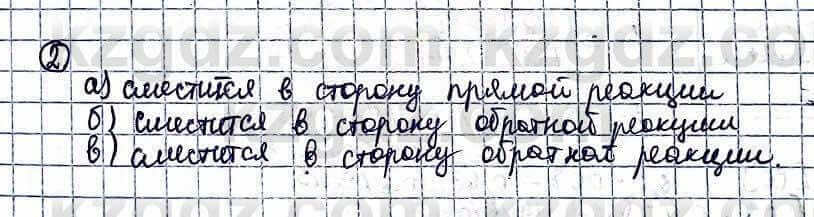 ②
а) сместится в сторону прямой реакции
б) сместится в сторону обратной реакции
в) сместится в сторону обратной реакции.